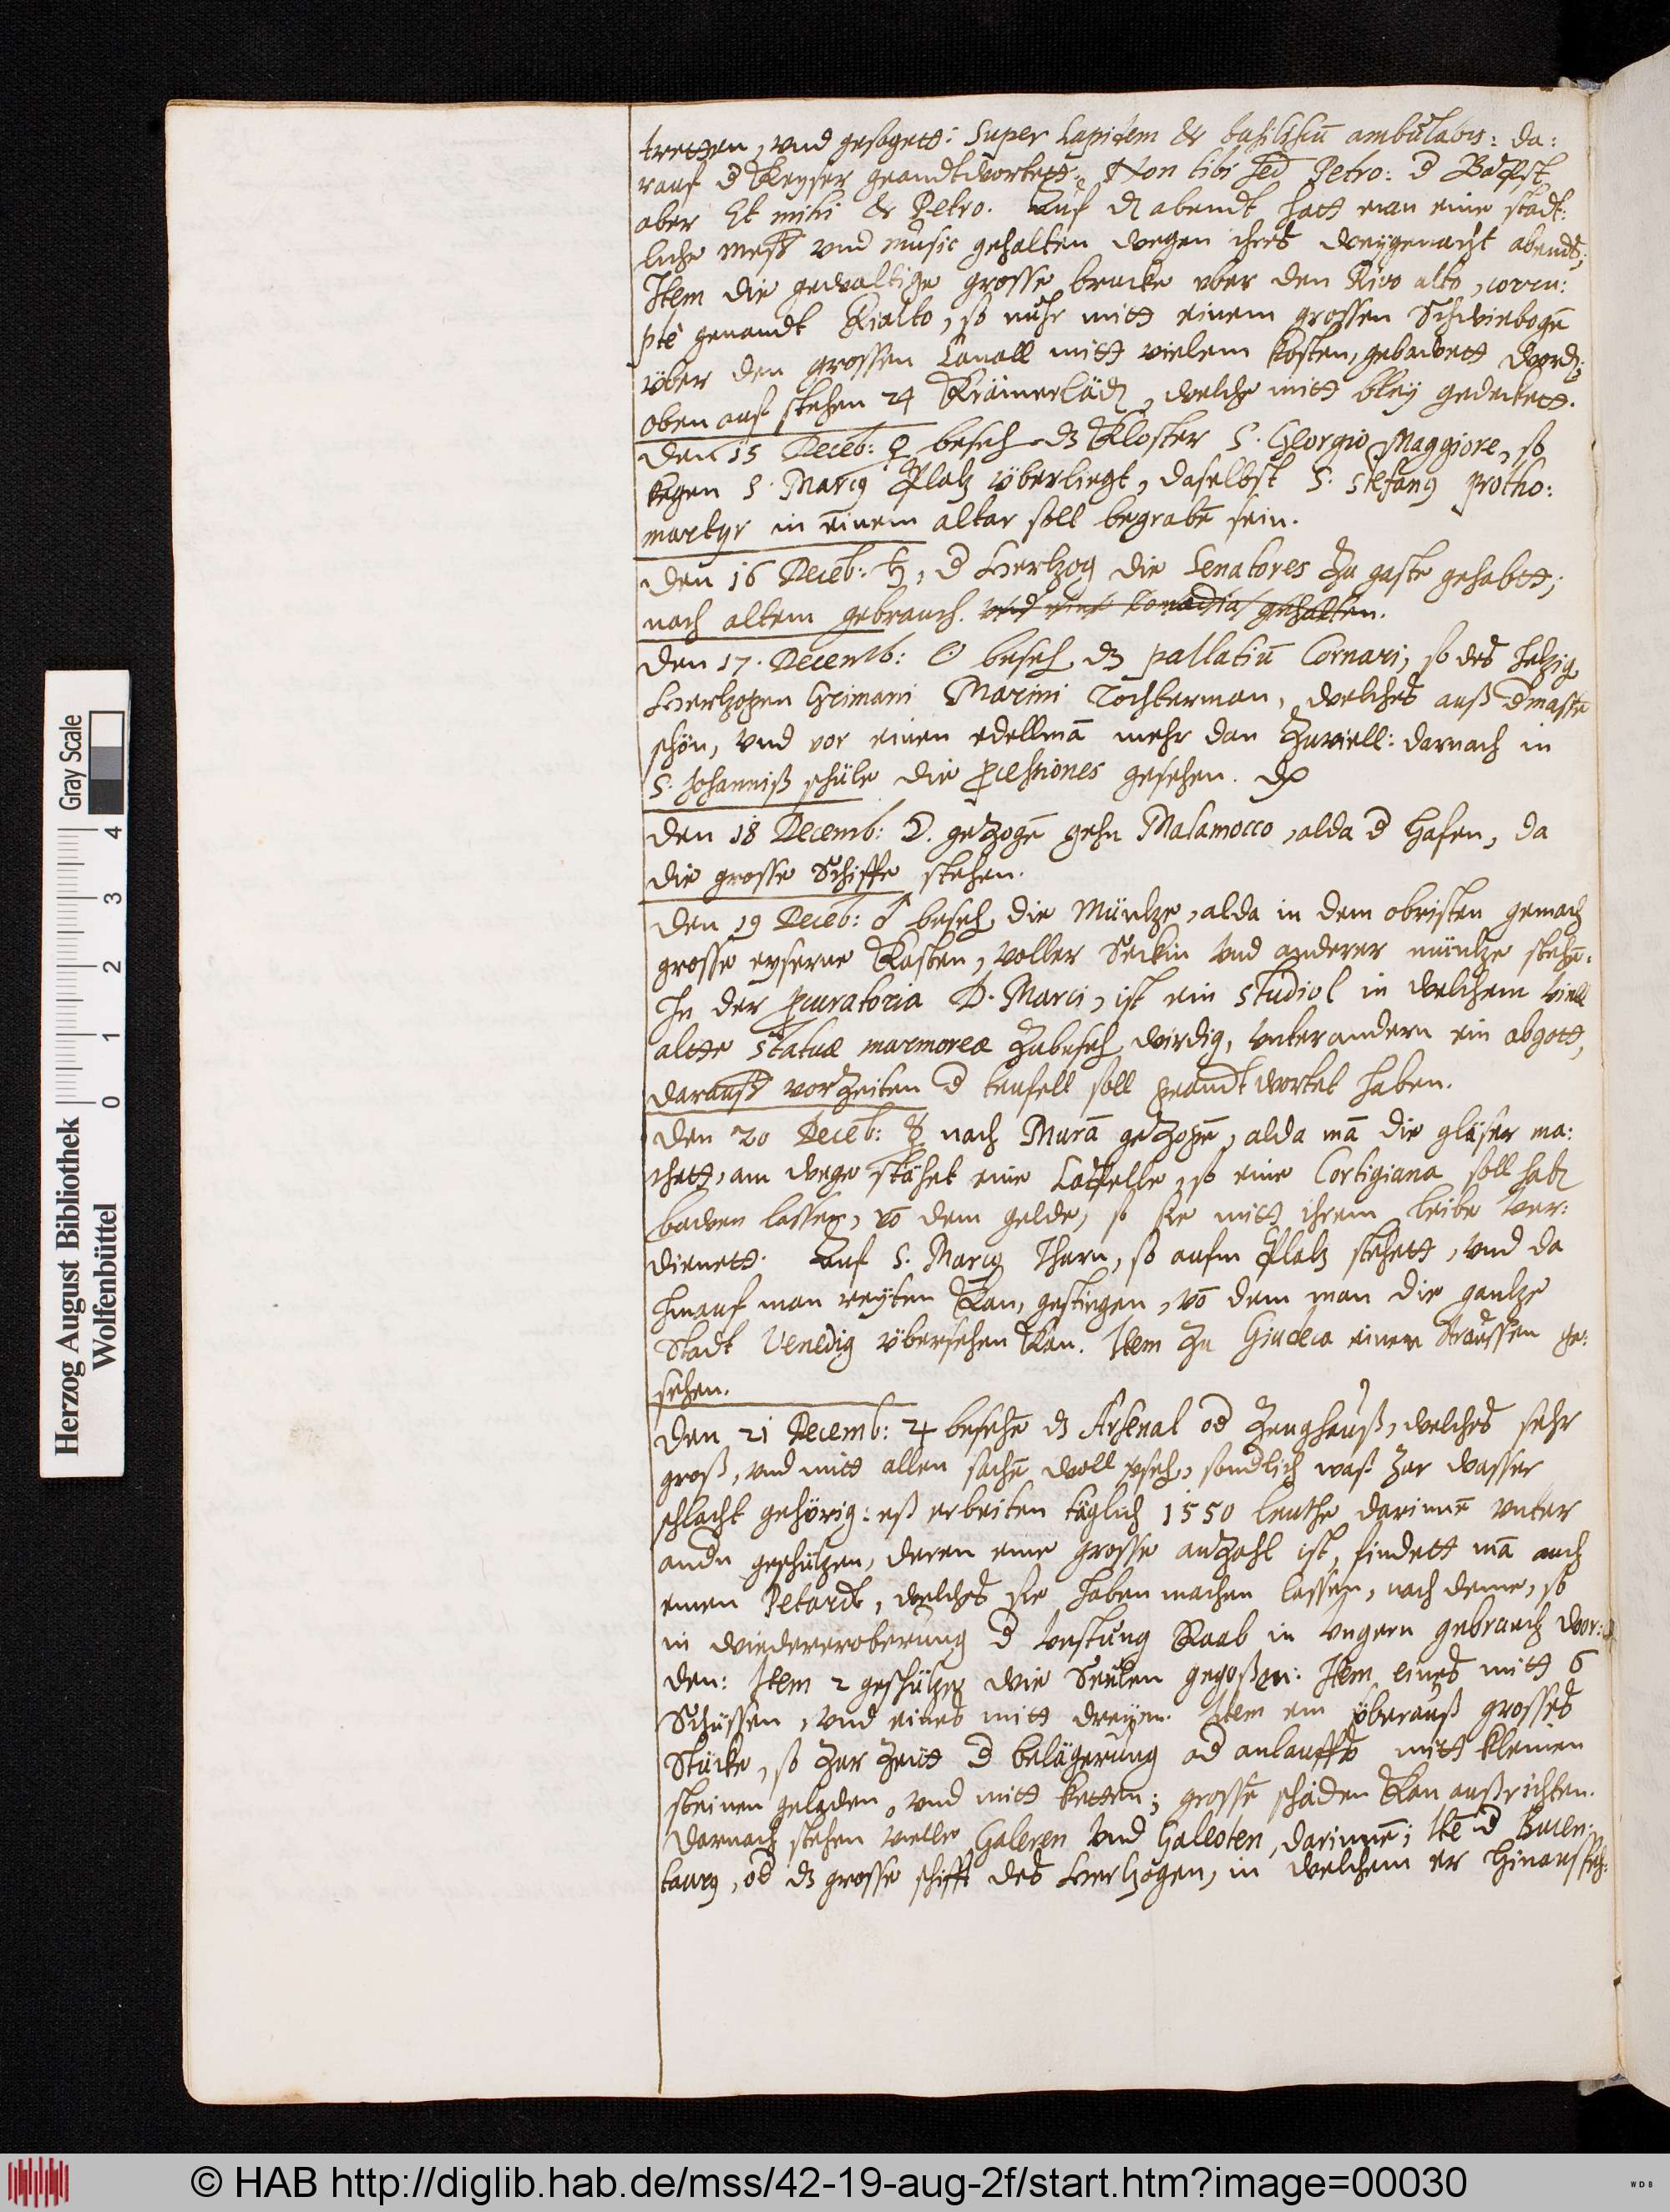 tretten, vnd gesagett: Super Lapidem & basiliscū ambulabis: da:
rauf d Keyser geandtwortett: Non tibi sed Petro: d Babst
aber Et mihi & Petro. Auf dē abendt hatt man eine stadt:
liche mess vnd music gehalten wegen ihres weygenacht abends;
Item die gewaltige grosse brucke vber den Rivo alto, corru:
ptè genandt Rialto, so nuhr mitt einem grossen Schwiebogē
über den grossen Canall mitt vielem kosten, gebawett wordē;
oben auf stehen 24 Krämerlädē, welche mitt bley gedeckett.
Den 15 Decēb: ♀ besehē dz Kloster S. Georgio Maggiore, so
kegen S. Marcꝰ Platz überliegt, daselbst S. Stefanꝰ Protho:
martyr in einem altar soll begrabē sein.
Den 16 Decēb: ♄, d Hertzog die Senatores zu gaste gehabtt;
nach altem gebrauch. vnd eine Comœdia gehalten.
Den 17. Decemb: ☉ besehē dz pallatiū Cornari, so des jetzigē
Hertzogen Grimani Marini Tochterman, welches auß dmaste
schön, vnd vor einen edellmā mehr dan zuviell: darnach in
S. Johanniß schüle die ꝓcessiones gesehen.
Den 18 Decemb: ☽. gezogē gehn Malamocco, alda d Hafen, da
die grosse Schiffe stehen.
Den 19 Decēb: ♂ besehē die Müntze, alda in dem obristen gemach
grosse eyserne Kasten, voller Seckin vnd anderer müntze stehē.
In der ꝓcuratoria D. Marci, ist ein studiol in welchem viell
altte statuæ marmoreæ zubesehē wirdig, vnter andern ein abgott,
darauss vorzeiten d teufell soll geandtwortet haben.
Den 20 Decēb: ☿ nach Murā gezogē, alda mā die gläser ma:
chett, am wege stähet eine Cappelle, so eine Cortigiana soll habē
bawen lassen, vō dem gelde, so sie mitt ihrem leibe ver:
dienett. Auf S. Marcꝰ Thurn, so aufm Platz stehett, vnd da
hinauf man reyten kan, gestiegen, vō dem man die gantze
Stadt Venedig übersehen kan. Item zu Giudeca einen Straussen ge:
sehen.
Den 21 Decemb: ♃ besehē dz Arsenal od Zeughauß, welches sehr
groß, vnd mitt allen sachē woll vsehē, sondlich waß zur wasser
schlacht gehörig: eß erbeiten täglich 1550 leuthe darinnē vnter
andn geschützen, deren eine grosse anzahl ist, findett mā auch
einen Petardt, welches sie haben machen lassen, nach deme, so
in wiedereroberung d vestung Raab in Vngern gebrauch wor:
den: Item 2 geschütze wie Seulen gegoßen: Item eines mitt 6
Schüssen, vnd eines mitt dreyen. Item ein überauß grosses
Stücke, so zur zeitt d belägerung od anlauffs mitt kleinen
steinen geladen, vnd mitt ketten; grosse schäden kan außrichten.
Darnach stehen vielle Galeren vnd Galleoten, darinnē; Itē d Bucen:
taurꝰ, od dz grosse schiff des Hertzogen, in welchem er hinaussfeh:
Herzog August Bibliothek
Wolfenbüttel
Gray Scale
0 1 2 3 4
© HAB http://diglib.hab.de/mss/42-19-aug-2f/start.htm?image=00030
WDB